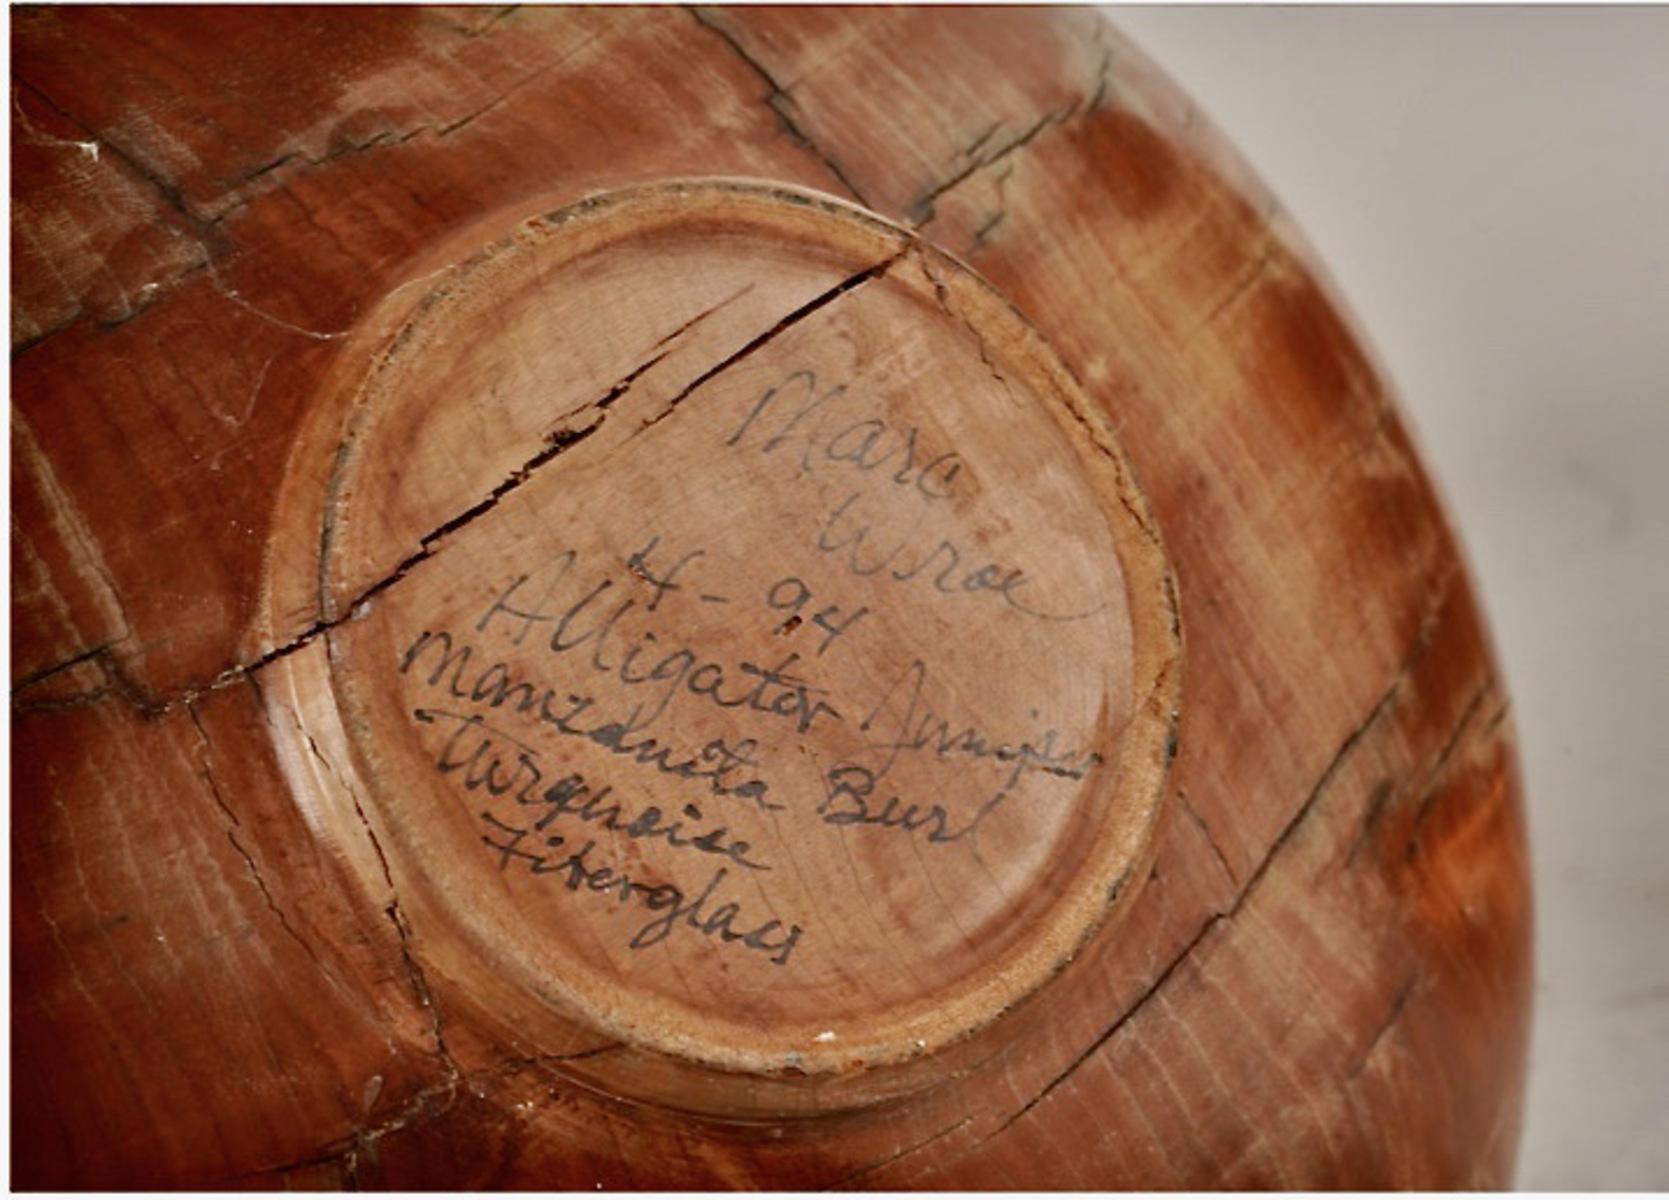 Marc
Wroe
4-94
Alligator Juniper
Manzanita Burl
Turquoise
Fiberglass